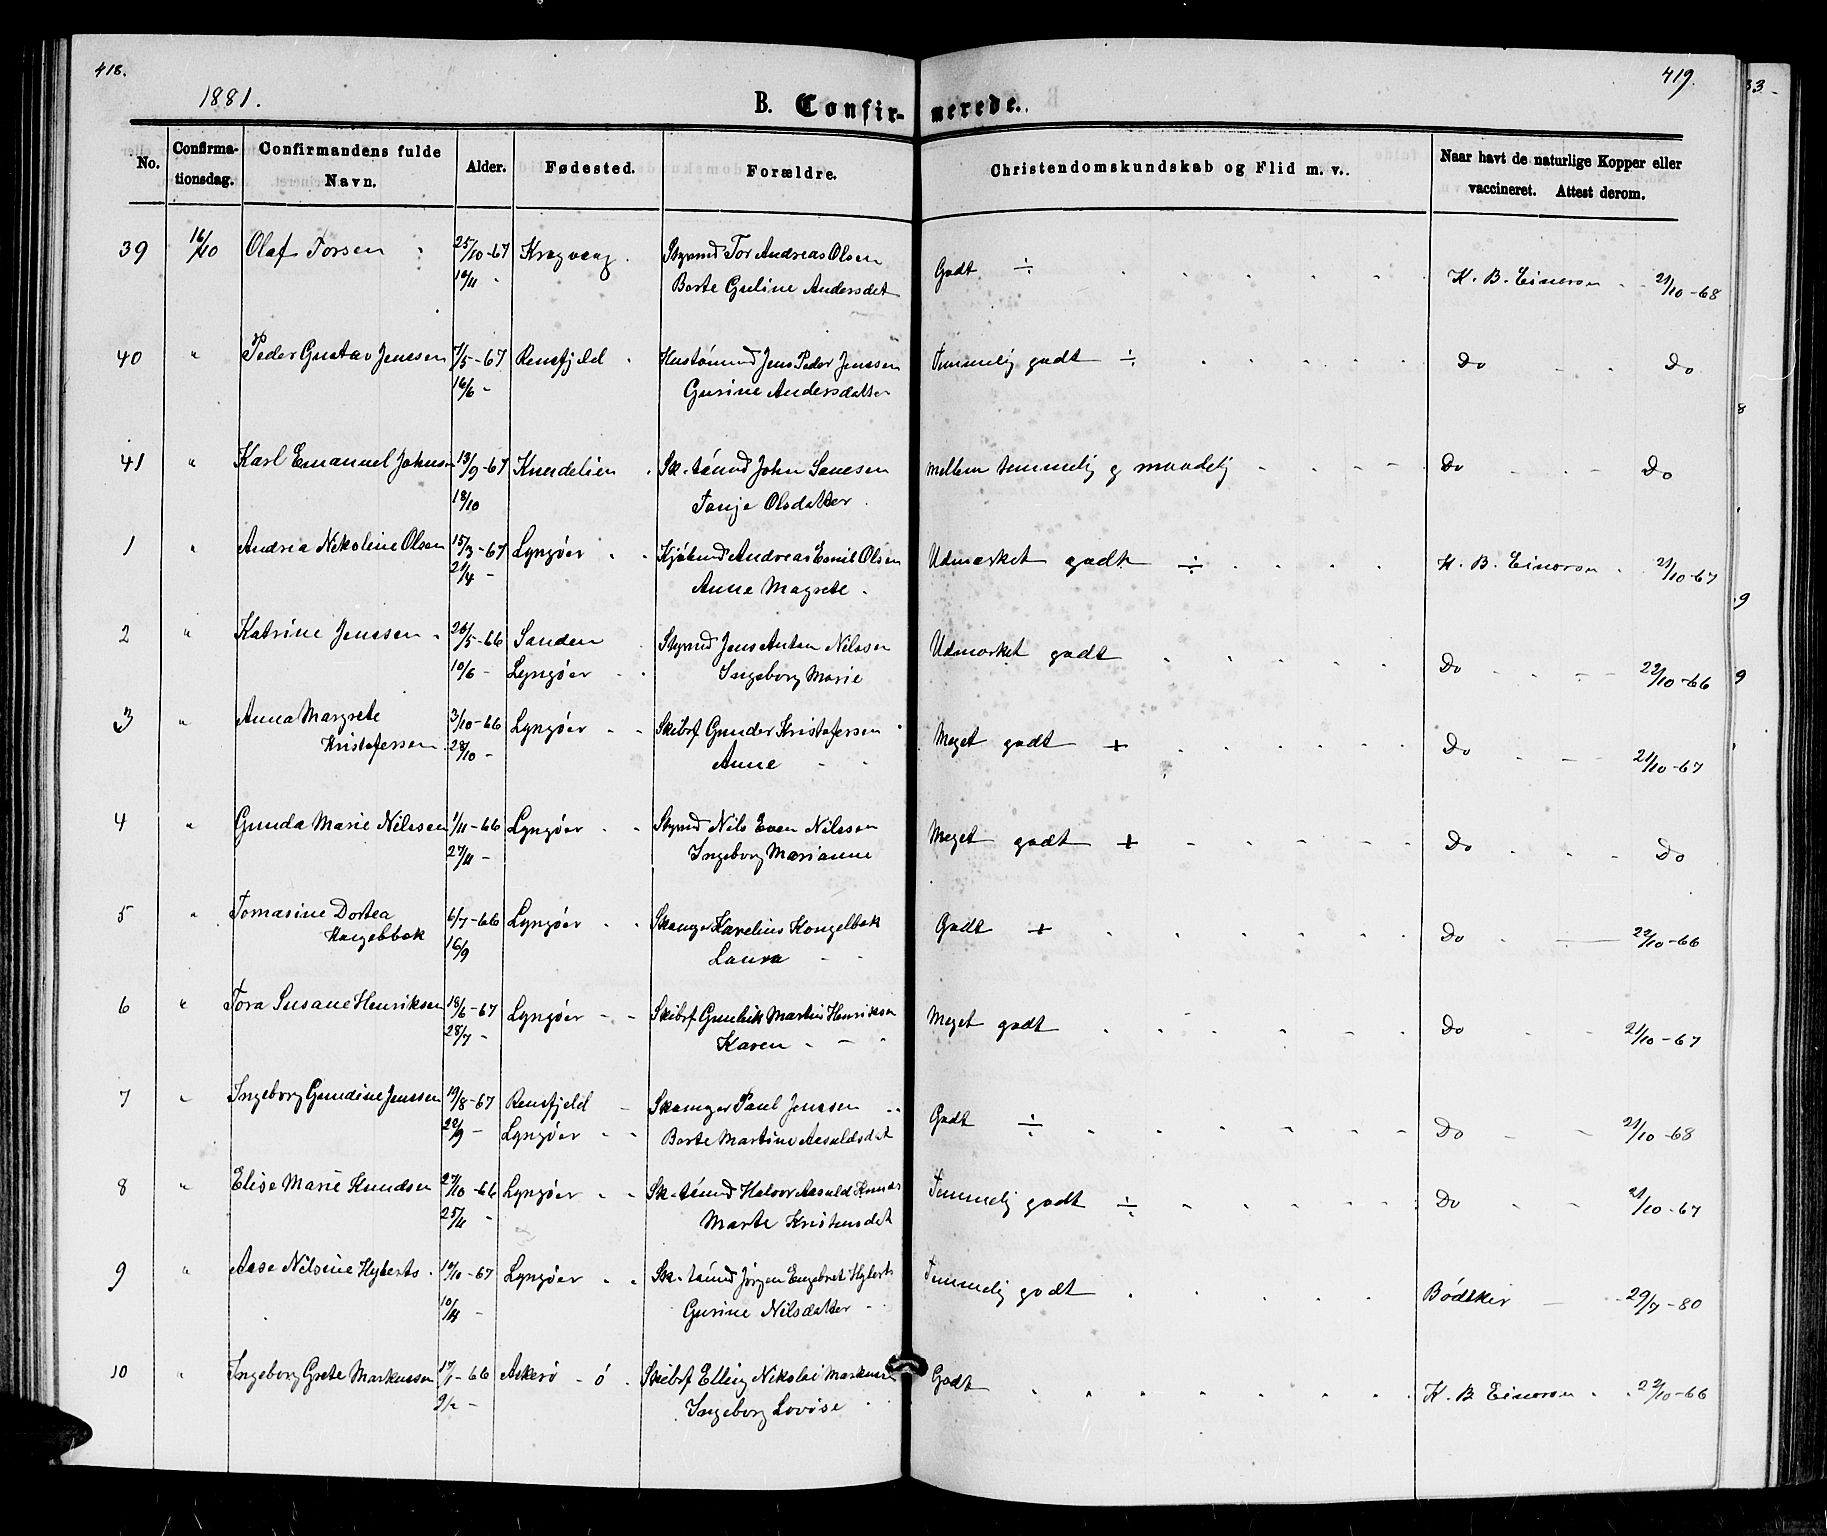 418.
419.
1881.
B. Confirmerede.
No. Confirmationsdag. Confirmandens fulde Navn. Alder. Fødested. Forældre. Christendomskundskab og Flid m. v. Naar havt de naturlige Kopper eller vaccineret. Attest derom.
39 16/10 Olaf Torsen 25/10-67 Kragvaag Styrmd Tor Andreas Olsen Godt ÷ K. B. Einerson 21/10-68
18/11 - Berte Guline Andersdet
40 " Peder Gustav Jenssen 7/5-67 Rensfjeld Hustømmd Jens Peder Jenssen Temmelig godt ÷ Do Do
16/6 - Gurine Andersdatter
41 " Karl Emanuel Johnsen 13/9-67 Knerdelien Sk-tømmd John Sanesen mellem temmelig g maadelig Do Do
18/10 Tanje Olsdatter
1 " Andrea Nikoline Olsen 15/3-67 Lyngøer Kjøbmd Andreas Emil Olsen Udmærket godt ÷ K. B. Einerson 21/10-67
21/4 - Anne Magrete
2 " Katrine Jenssen 26/5-66 Sanden Styrmd Jens Anton Nilssen Udmærket godt Do 22/10-66
10/6 - Lyngøer Ingeborg Marie
3 " Anna Margrete 3/10-66 Lyngøer Skibsf Gunder Kristofersen Meget godt + Do 21/10-67
Kristofersen 28/10 - Anne
4 " Gunda Marie Nilssen 1/11-66 Lyngøer Styrmd Nils Even Nilssen Meget godt + Do Do
27/11 - Ingeborg Marianne
5 " Tomasine Dortea 6/7-66 Lyngøer Skomager Karelius Kongelbek Godt + Do 22/10-66
Kongelbek 16/9 Laura
6 " Tora Susane Henriksen 18/6-67 Lyngøer Skibsf Gunlek Martin Henriksen Meget godt Do 21/10-67
28/7 - Karen
7 " Ingeborg Gundine Jenssen 19/8-67 Rensfjeld Skomager Paul Jenssen Godt ÷ Do 21/10-68
22/9 - Lyngøer Berte Martine Aasuldsdet
8 " Elise Marie Knudsen 27/10-66 Lyngøer Sk-tømmd Halvor Aasuld Knuds Temmelig godt ÷ Do 21/10-67
25/11 - Marte Kristensdet
9 " Aase Nilsine Hyberts 19/10-67 Lyngøer Sk-tømmd Jørgen Engebret Hyberts Temmelig godt Bødtker 29/7-80
10/11 - Gurine Nilsdatter
10 " Ingeborg Grete Markussen 17/1-66 Askerø - ø Skibsf Elling Nikolai Markussen Godt K. B. Einerson 22/10-66
9/2 - Ingeborg Lovise